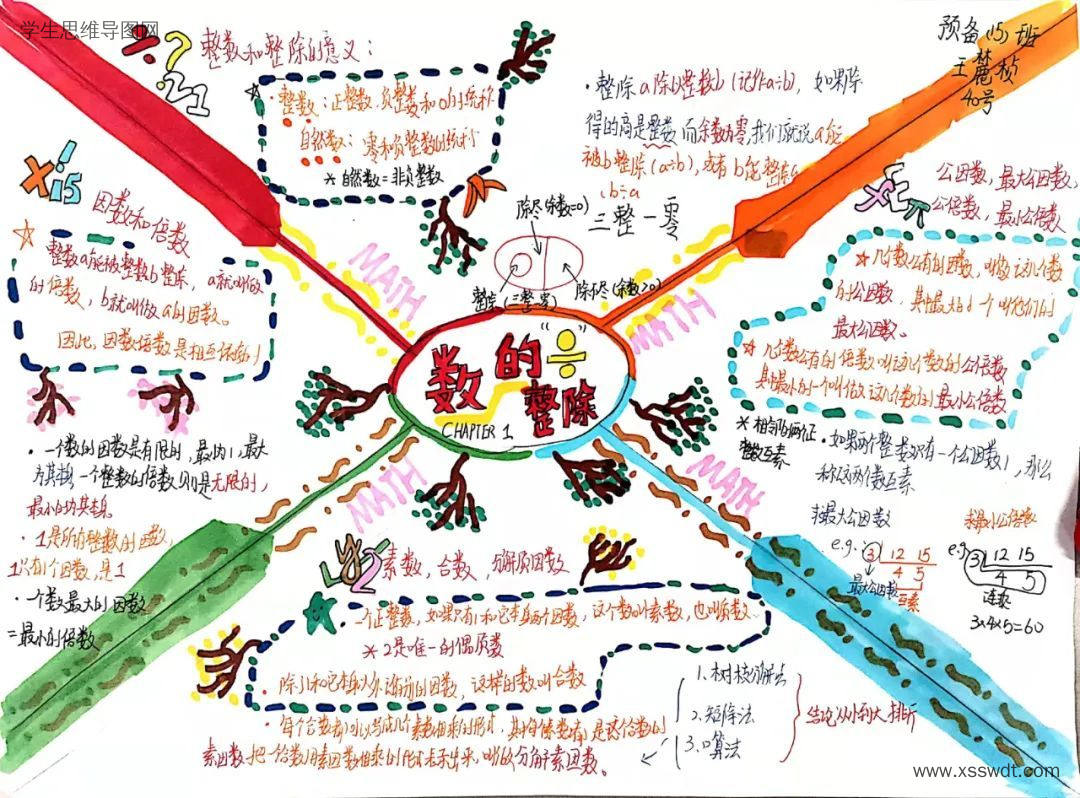 学生思维导图网
预备(5)班
王麓桢
40号
整数和整除的意义:
整数:正整数,负整数和0的统称
自然数:零和正整数的统称
*自然数=非负整数
·整除 a除以整数b(记作a÷b),如果除
得的商是整数而余数为零,我们就说a能
被b整除(a÷b),或者b能整除a
b÷a
三整一零
除尽(余数=0)
整除(三整一零)
除不尽(余数>0)
MATH
MATH
MATH
MATH
数的“÷”
整除
CHAPTER 1
因数和倍数
整数a能被整数b整除,a就叫做
b的倍数,b就叫做a的因数。
因此,因数倍数是相互依存的
·一个数的因数是有限的,最小为1,最大
为其本身,一个整数的倍数则是无限的,
最小的为其本身。
·1是所有整数的因数,
1只有1个因数,是1
·一个数最大的因数
=最小的倍数
公因数,最大公因数,
公倍数,最小公倍数
几个数公有的因数,叫做这几个数
的公因数,其中最大的一个叫他们的
最大公因数。
几个数公有的倍数叫这几个数的公倍数
其中最小的一个叫做这几个数的最小公倍数
*相邻的两个正
整数互素
·如果两个整数只有一个公因数1,那么
称这两个数互素
求最大公因数
e.g.
3 12 15
4 5
最大公因数 互素
求最小公倍数
e.g.
3 12 15
4 5
连乘
3×4×5=60
素数,合数,分解质因数
·一个正整数,如果只有1和它本身两个因数,这个数叫素数,也叫质数
*2是唯一的偶质数
·除了1和它本身以外还有别的因数,这样的数叫合数
·每个合数都可以写成几个素数相乘的形式,其中每个素数都是这个合数的
素因数,把一个合数用素因数相乘的形式表示出来,叫做分解素因数。
1.树枝分解法
2.短除法
3.口算法
结论从小到大排列
www.xsswdt.com